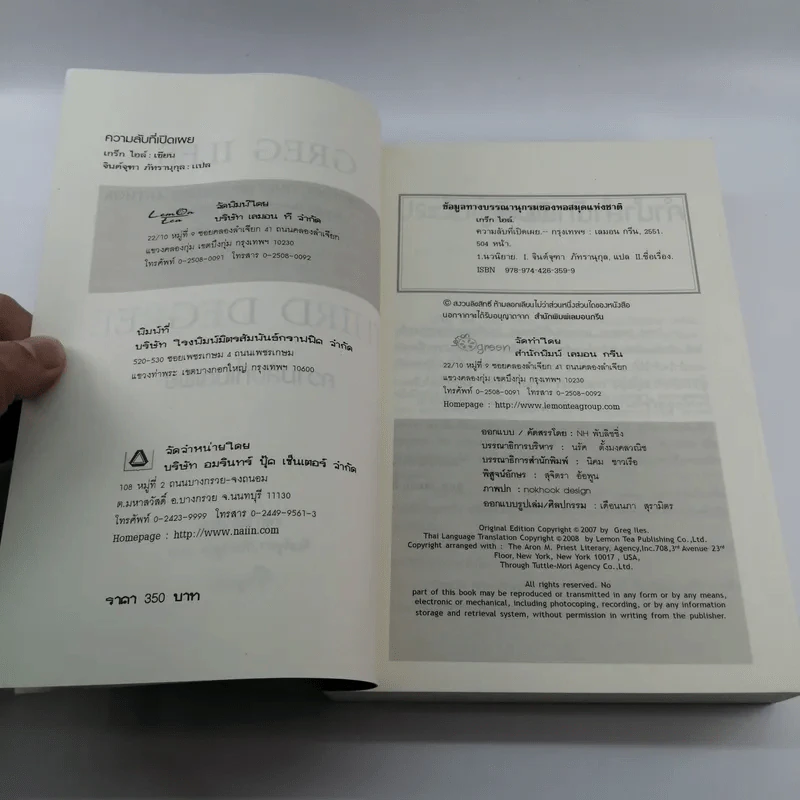 ความลับที่เปิดเผย
เกร็ก ไอล์ : เขียน
จินต์จุฑา ภัทรานุกุล : แปล
Lemon Tea
จัดพิมพ์โดย
บริษัท เลมอน ที จำกัด
22/10 หมู่ที่ 9 ซอยคลองลำเจียก 41 ถนนคลองลำเจียก
แขวงคลองกุ่ม เขตบึงกุ่ม กรุงเทพฯ 10230
โทรศัพท์ 0-2508-0091 โทรสาร 0-2508-0092
พิมพ์ที่
บริษัท โรงพิมพ์มิตรสัมพันธ์กราฟฟิค จำกัด
520-530 ซอยเพชรเกษม 4 ถนนเพชรเกษม
แขวงท่าพระ เขตบางกอกใหญ่ กรุงเทพฯ 10600
จัดจำหน่ายโดย
บริษัท อมรินทร์ บุ๊ค เซ็นเตอร์ จำกัด
108 หมู่ที่ 2 ถนนบางกรวย-จงถนอม
ต.มหาสวัสดิ์ อ.บางกรวย จ.นนทบุรี 11130
โทรศัพท์ 0-2423-9999 โทรสาร 0-2449-9561-3
Homepage : http://www.naiin.com
ราคา 350 บาท
ข้อมูลทางบรรณานุกรมของหอสมุดแห่งชาติ
เกร็ก ไอล์.
ความลับที่เปิดเผย.-- กรุงเทพฯ : เลมอน กรีน, 2551.
504 หน้า.
1.นวนิยาย. I. จินต์จุฑา ภัทรานุกุล, แปล II.ชื่อเรื่อง.
ISBN 978-974-426-359-9
© สงวนลิขสิทธิ์ ห้ามลอกเลียนไม่ว่าส่วนหนึ่งส่วนใดของหนังสือ
นอกจากจะได้รับอนุญาตจาก สำนักพิมพ์เลมอนกรีน
green
จัดทำโดย
สำนักพิมพ์ เลมอน กรีน
22/10 หมู่ที่ 9 ซอยคลองลำเจียก 41 ถนนคลองลำเจียก
แขวงคลองกุ่ม เขตบึงกุ่ม กรุงเทพฯ 10230
โทรศัพท์ 0-2508-0091 โทรสาร 0-2508-0092
Homepage : http://www.lemonteagroup.com
ออกแบบ / คัดสรรโดย : NH พับลิชชิ่ง
บรรณาธิการบริหาร : นรัศ ตั้งมงคลวณิช
บรรณาธิการสำนักพิมพ์ : นิคม ชาวเรือ
พิสูจน์อักษร : สุจิตรา อ้อพูน
ภาพปก : nokhook design
ออกแบบรูปเล่ม/ศิลปกรรม : เดือนนภา สุรามิตร
Original Edition Copyright © 2007 by Greg Iles.
Thai Language Translation Copyright © 2008 by Lemon Tea Publishing Co.,Ltd.
Copyright arranged with : The Aron M. Priest Literary, Agency,Inc.708,3rd Avenue 23rd
Floor, New York, New York 10017 , USA,
Through Tuttle-Mori Agency Co.,Ltd.
All rights reserved. No
part of this book may be reproduced or transmitted in any form or by any means,
electronic or mechanical, including photocoping, recording, or by any information
storage and retrieval system, without permission in writing from the publisher.